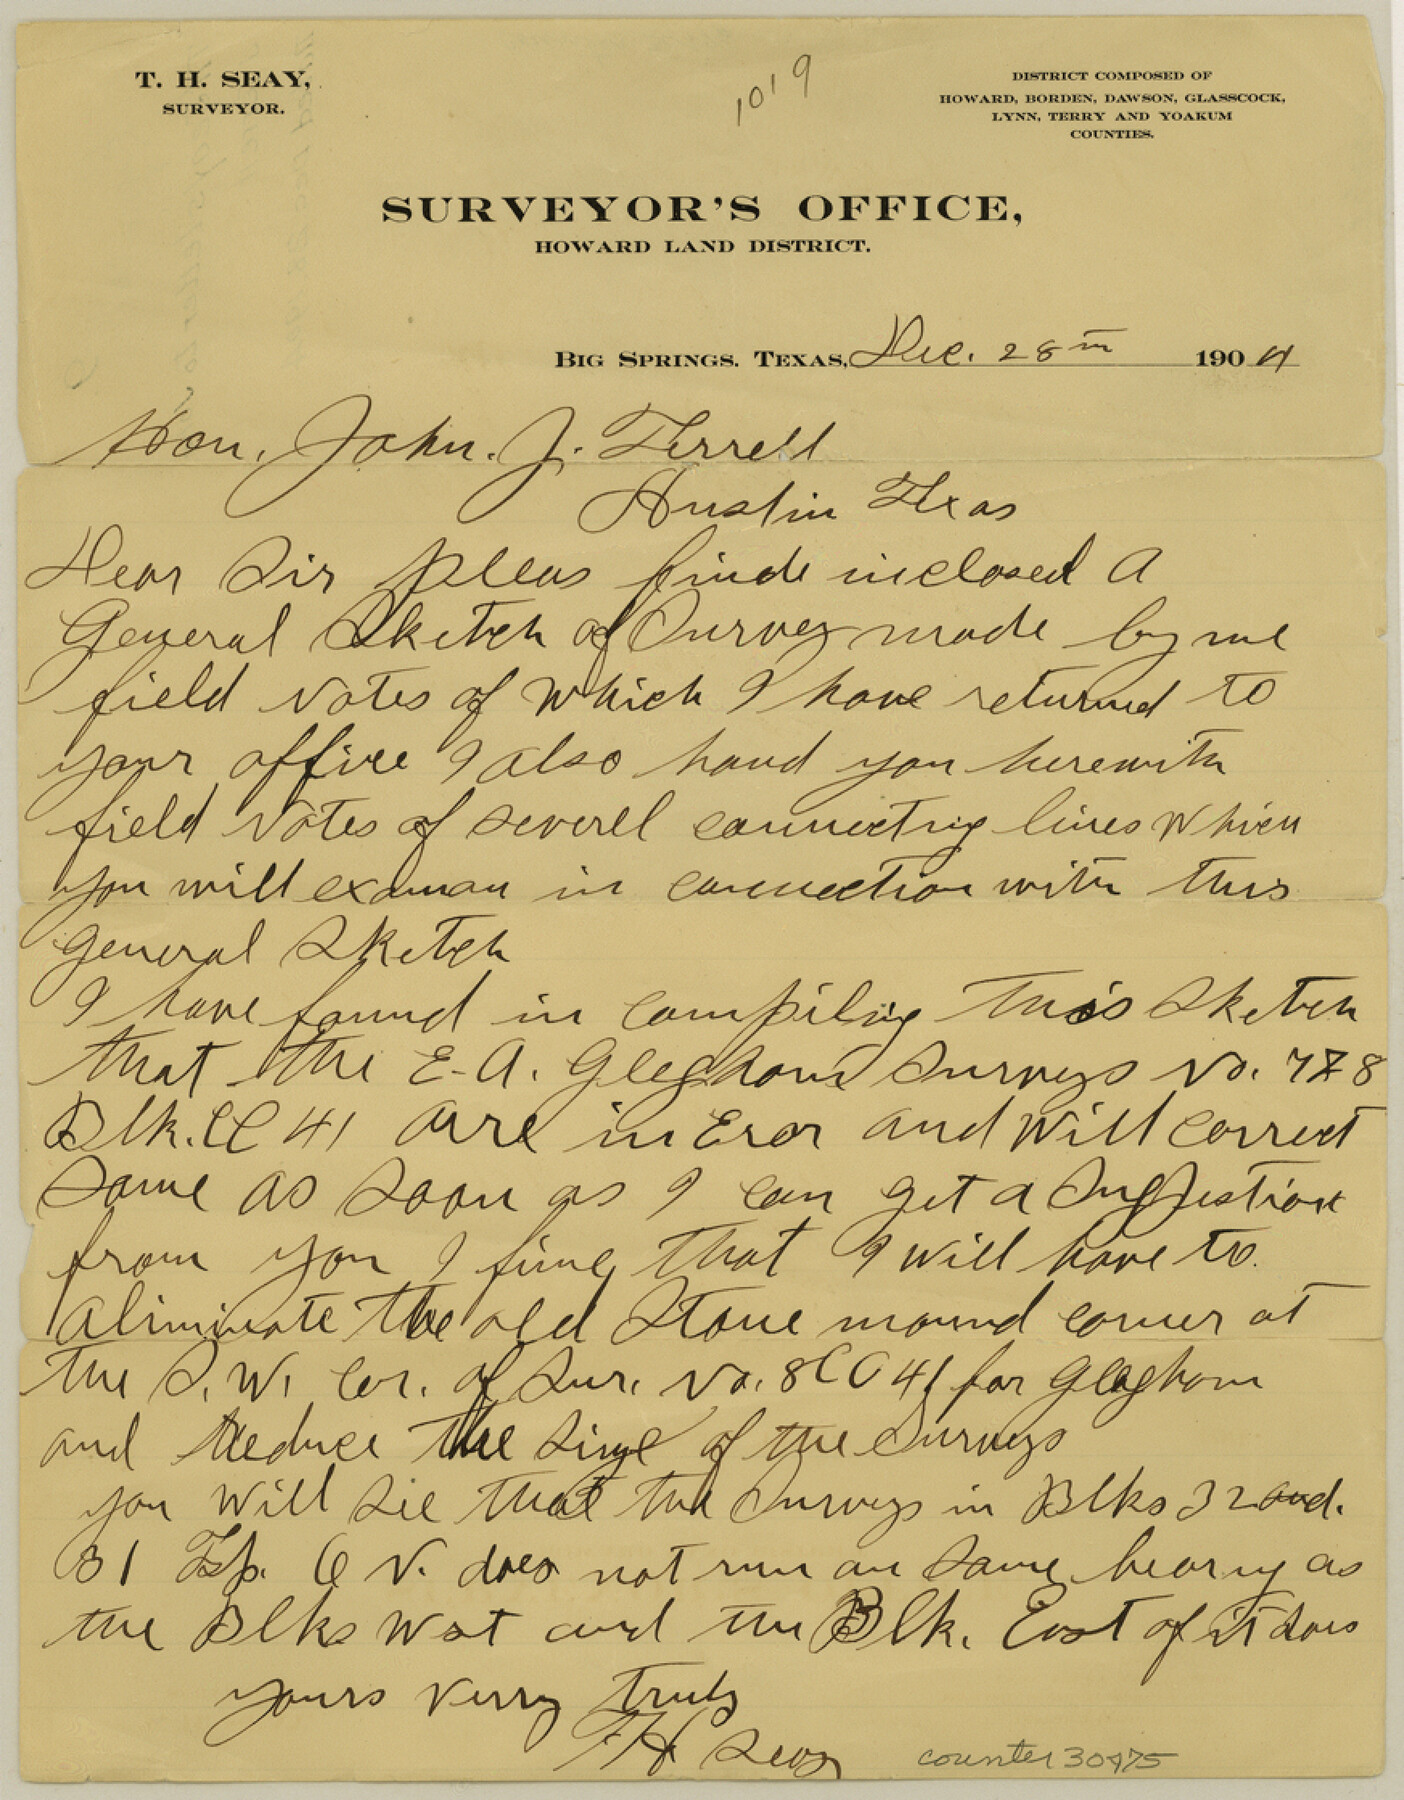 T. H. SEAY,
SURVEYOR.
1019
DISTRICT COMPOSED OF
HOWARD, BORDEN, DAWSON, GLASSCOCK,
LYNN, TERRY AND YOAKUM
COUNTIES.
SURVEYOR'S OFFICE,
HOWARD LAND DISTRICT.
BIG SPRINGS. TEXAS, Dec. 28th 1904
Hon. John. J. Terrell
Austin Texas
Dear Sir pleas finde inclosed a
General Sketch of Survey made by me
field Notes of Which I have returned to
your office I also hand you herewith
field Notes of severel connecting lines Which
you will examan in connection with this
general Sketch
I have found in compiling this Sketch
that the E. A. Gleghorn Surveys No. 7 & 8
Blk. CC 41 arre in Eror and Will correct
Same as Soon as I can get a Sugjestion
from you I fine that I Will have to
aliminate the old Stone mound corner at
the S. W. Cor. of Sur. No. 8 CC 41 for Gleghorn
and Reduce the Size of the Surveys
you Will See that the Surveys in Blks 32 and.
31 Tsp. 6 N. does not run on Same bearing as
the Blks West and the Blk. East of it does
yours Verry truly
T H Seay
counter 30475